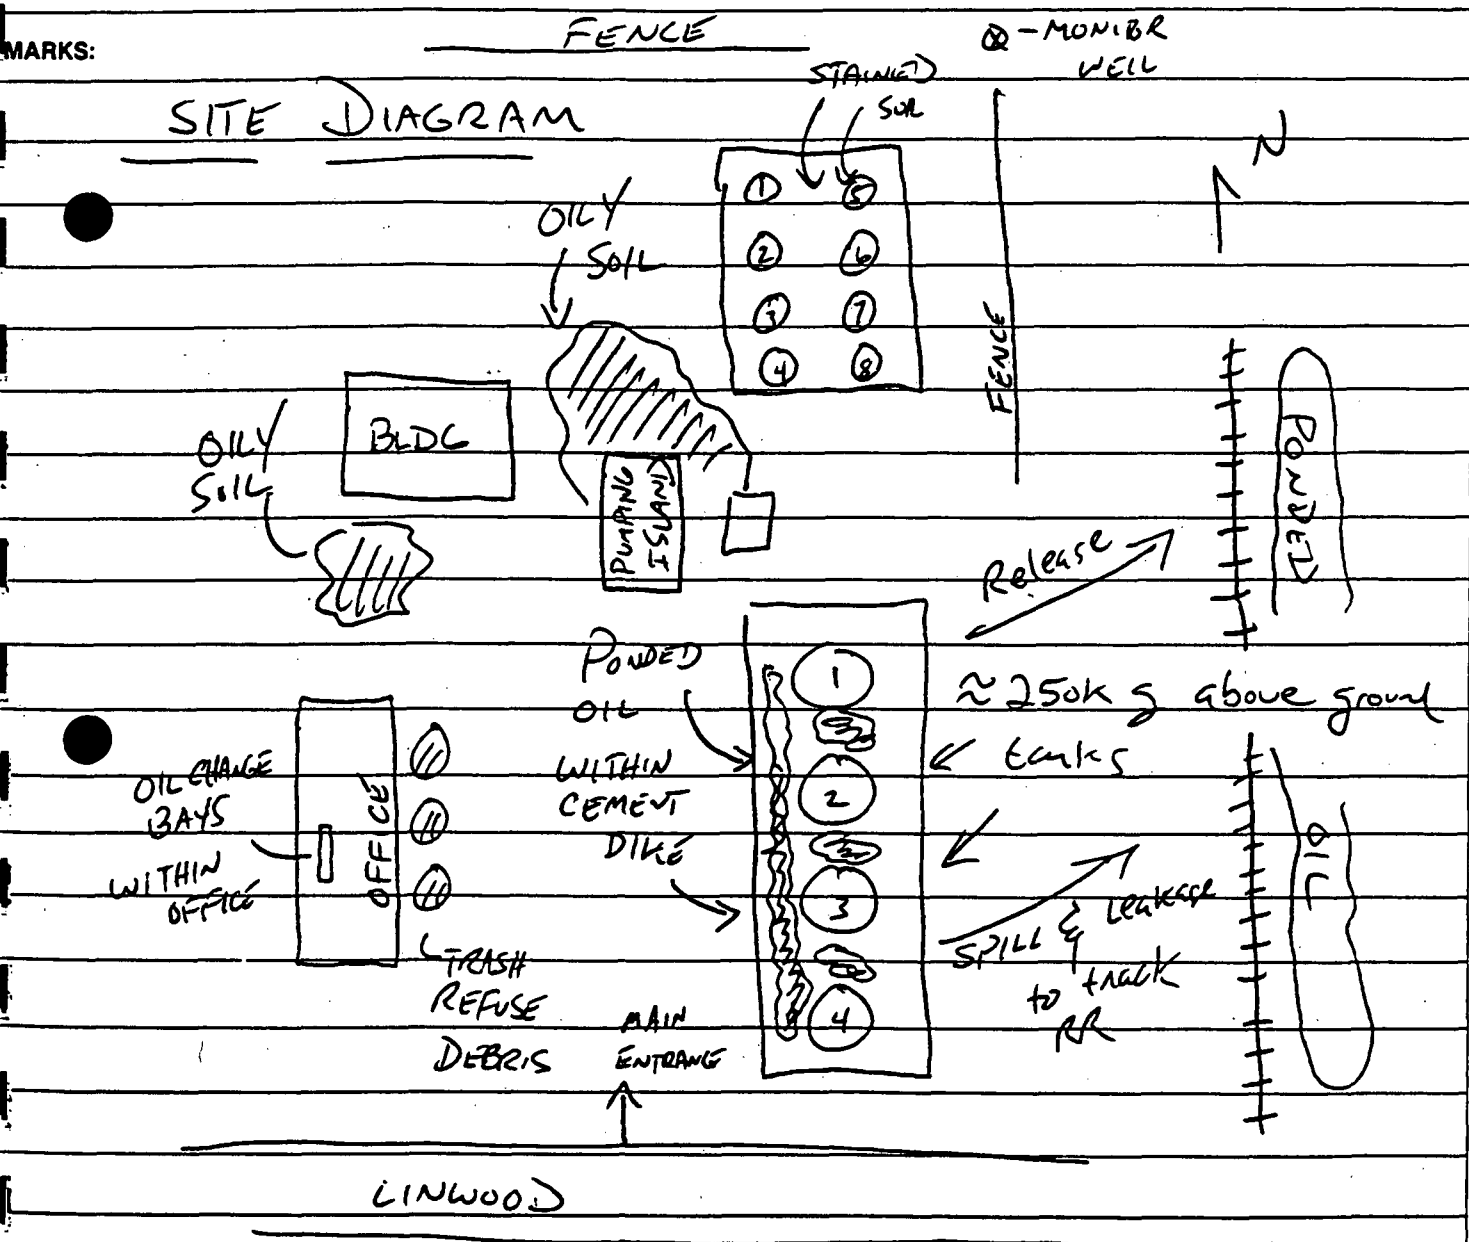 MARKS:
FENCE
⊗ - MONITOR
WELL
SITE DIAGRAM
STAINED
SOIL
N
OILY
SOIL
1 5
2 6
3 7
4 8
FENCE
BLDG
OILY
SOIL
PUMPING
ISLAND
PONDED
Release
PONDED
OIL
WITHIN
CEMENT
DIKE
1
2
3
4
≈ 250K g above ground
tanks
OIL CHANGE
BAYS
WITHIN
OFFICE
OFFICE
OIL
SPILL & Leakage
to track
RR
TRASH
REFUSE
DEBRIS
MAIN
ENTRANCE
LINWOOD